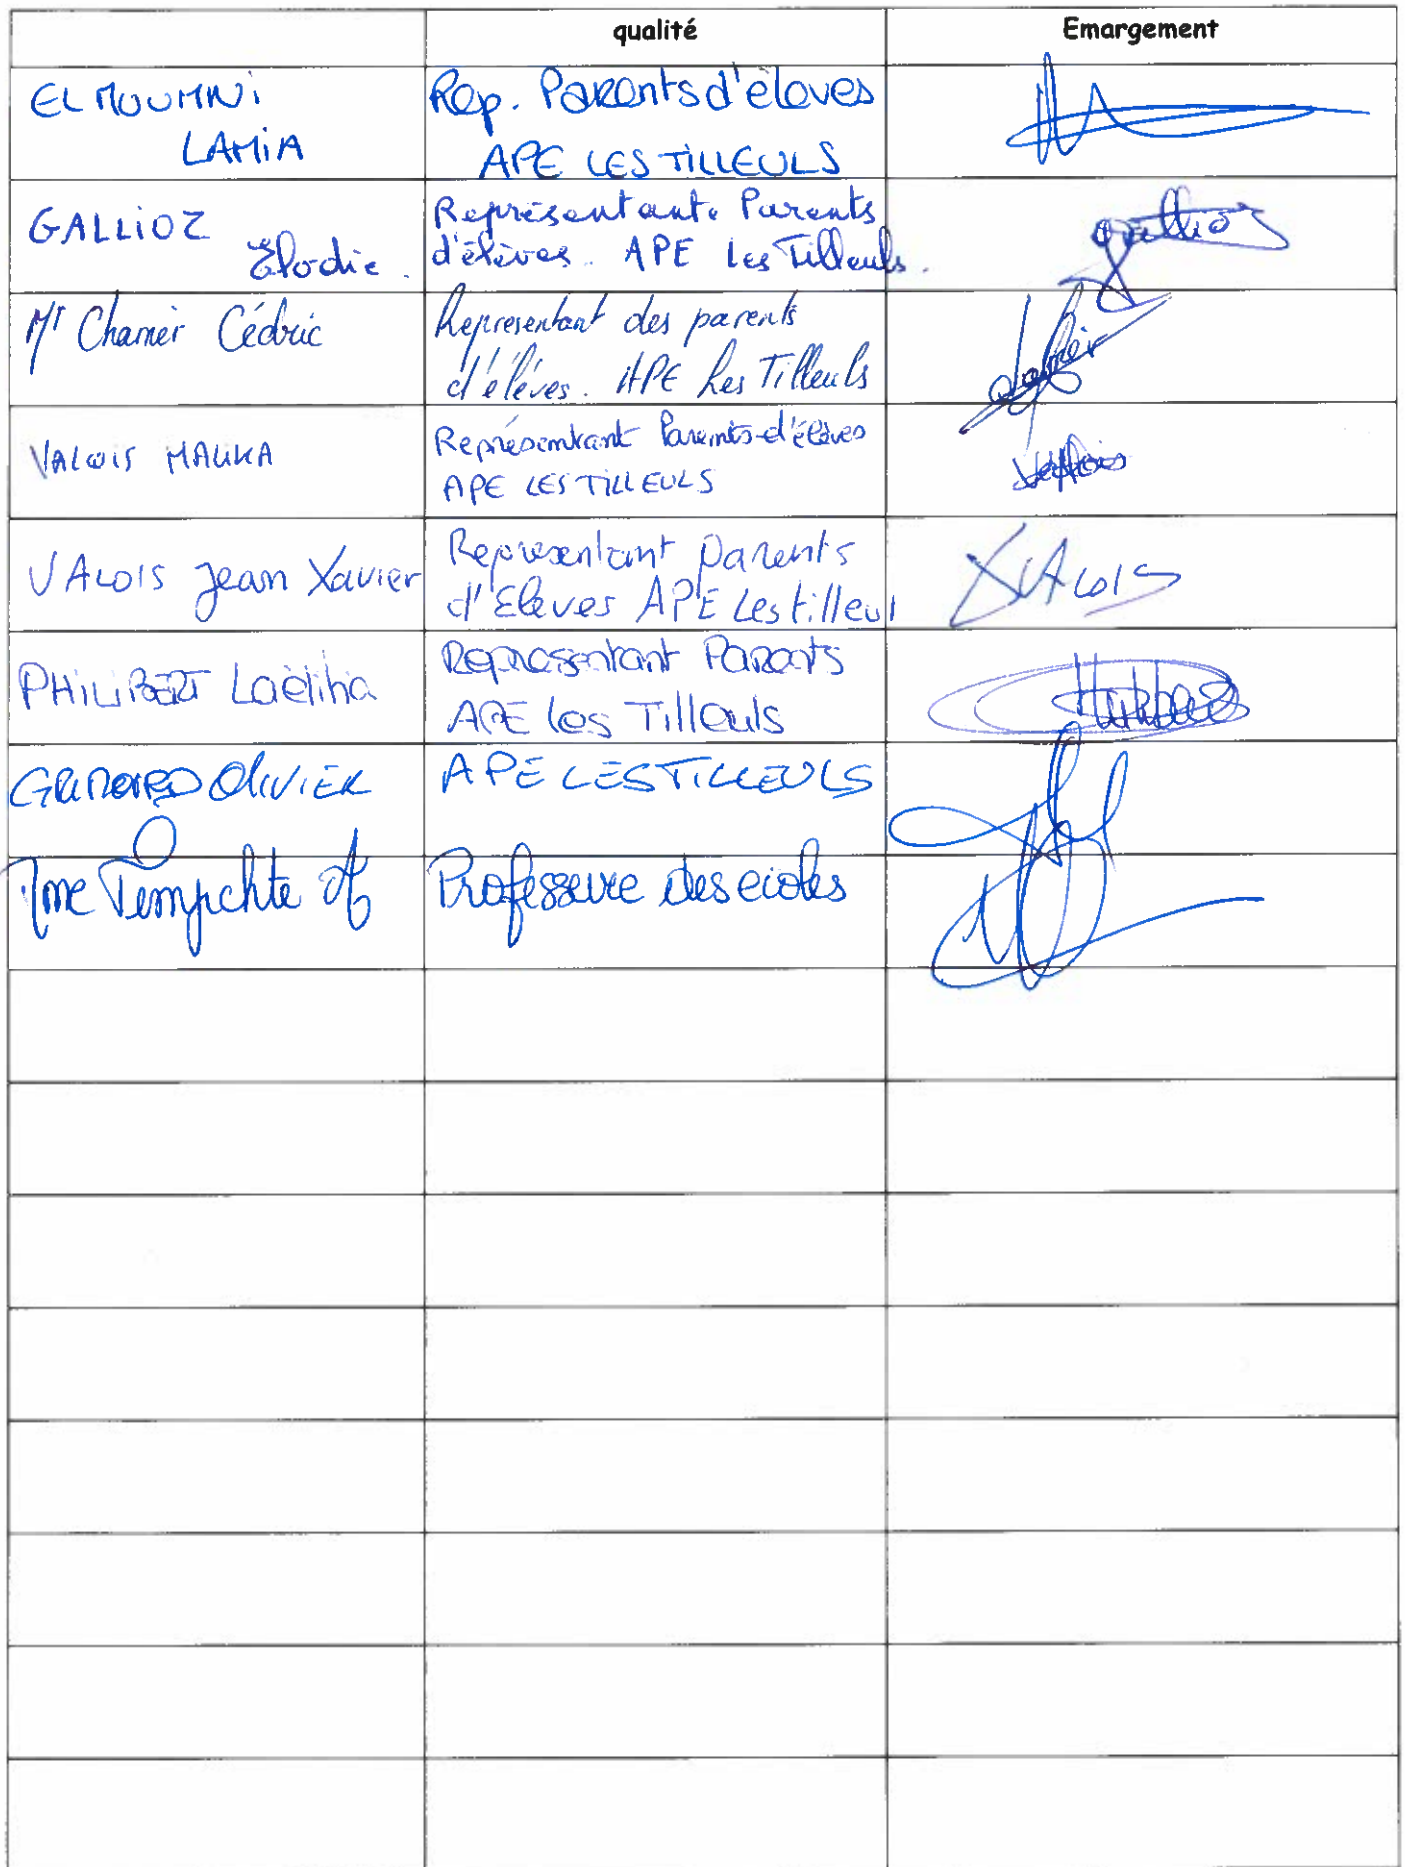 qualité Emargement
EL MOUMNi Rep. Parents d'élèves
LAMiA APE LES TiLLEULS
GALLiOZ Représentante Parents
Élodie. d'élèves. APE Les Tilleuls.
Mr Charrier Cédric Representant des parents
d'élèves. APE Les Tilleuls
VALOIS Représentant Parents d'élèves
APE LES TiLLEULS
VALOIS Jean Xavier Representant parents VALOIS
d'Elèves APE Les tilleul
PHILIBERT Laëtitia Representant Parents
APE Les Tilleuls
OLIVIER APE LES TILLEULS
Mme Professeure des ecoles